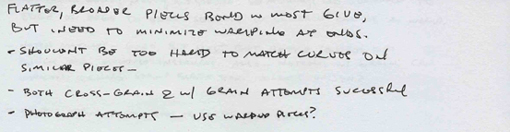 FLATTER, BROADER PIECES BOND W MOST GIVE,
BUT NEED TO MINIMIZE WARPING AT ENDS.
- SHOULDNT BE TOO HARD TO MATCH CURVES ON
SIMILAR PIECES -
- BOTH CROSS-GRAIN & W/ GRAIN ATTEMPTS SUCCESSFUL
- PHOTOGRAPH ATTEMPTS - USE WARPED PIECES?